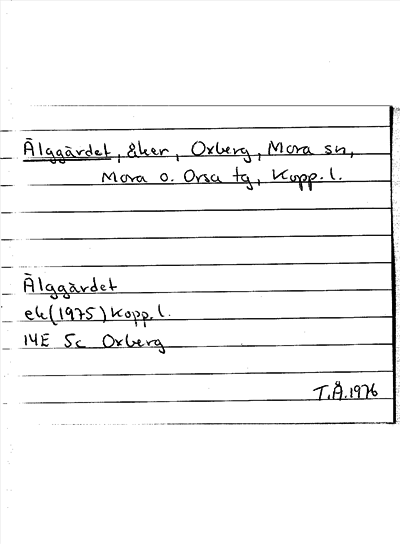 Älggärdet, åker, Oxberg, Mora sn,
Mora o. Orsa tg, Kopp. l.
Älggärdet
ek (1975) Kopp. l.
14E 5c Oxberg
T.Å. 1976